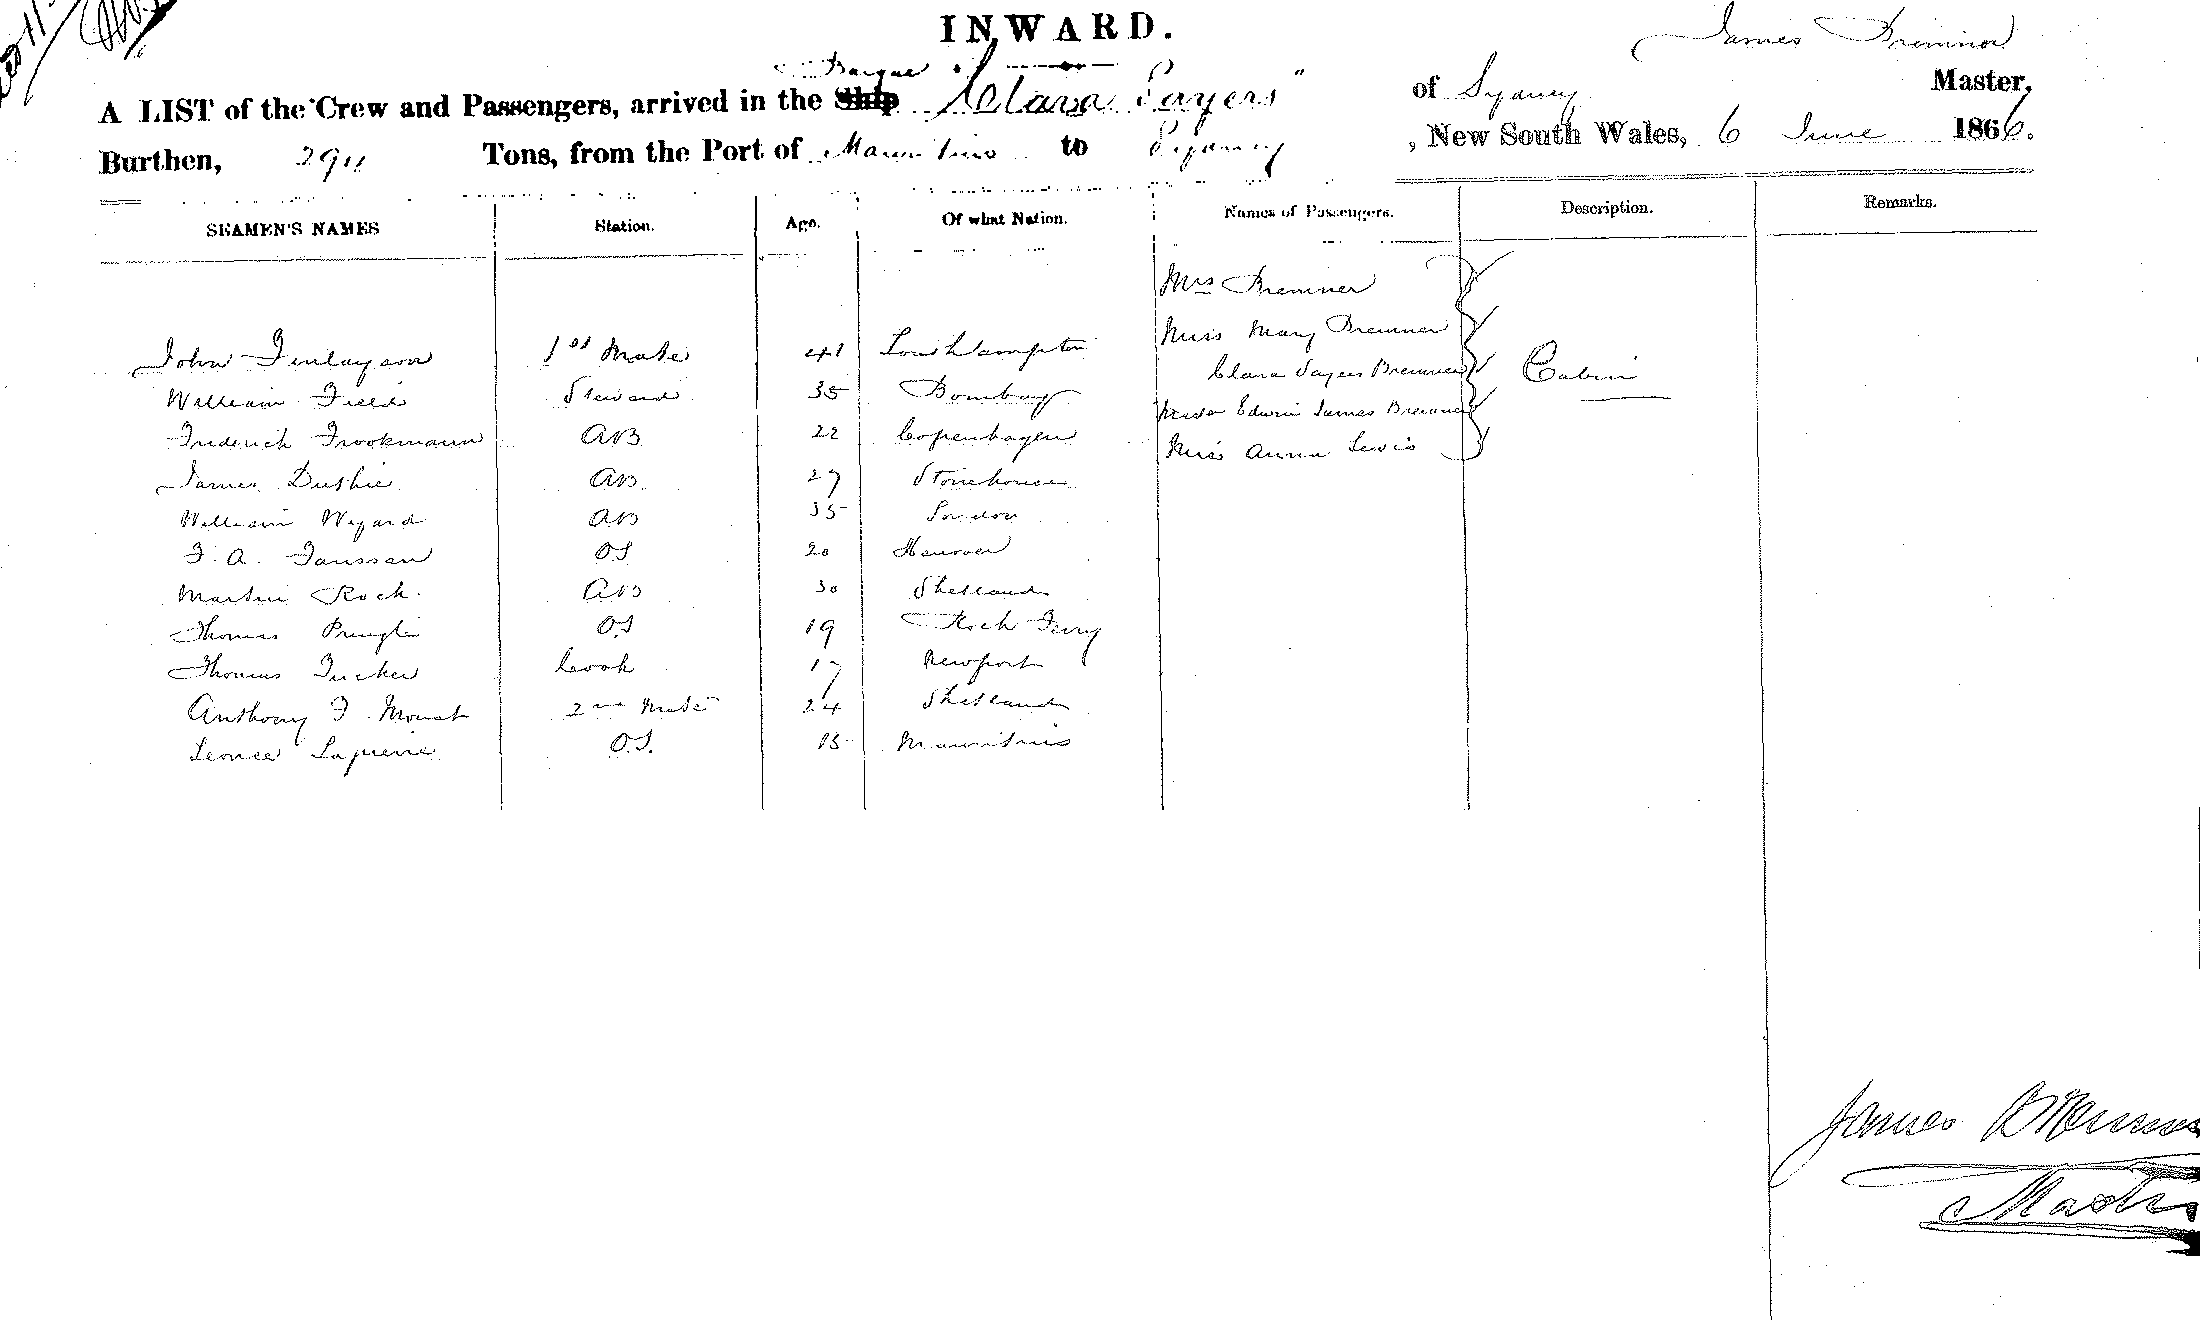 INWARD.
James Bremner
Barque
A LIST of the Crew and Passengers, arrived in the Ship "Clara Sayers" of Sydney Master,
Burthen, Tons, from the Port of Mauritius to Sydney , New South Wales, 6 June 1866.
SEAMEN'S NAMES Station. Age. Of what Nation. Names of Passengers. Description. Remarks.
Mrs Bremner
Miss Mary Bremner
John Finlayson 1st Mate 41 Southampton
Clara Sayers Bremner Cabin
William Field Steward 35 Bombay
Edwin James Bremner
Frederick Frookmann AB 22 Copenhagen
Miss Anna Lewis
James Duthie AB 27 Stonehouse
William Wizard AB 35 London
F. A. Janssan OS 20 Hanover
Martin Rock AB 30 Shetland
Thomas Pringle OS 19 Rock Ferry
Thomas Tucker Cook 17 Newport
Anthony F. Mouat 2nd Mate 24 Shetland
Leonce Lapierre O.S. 15 Mauritius
James Bremner
Master